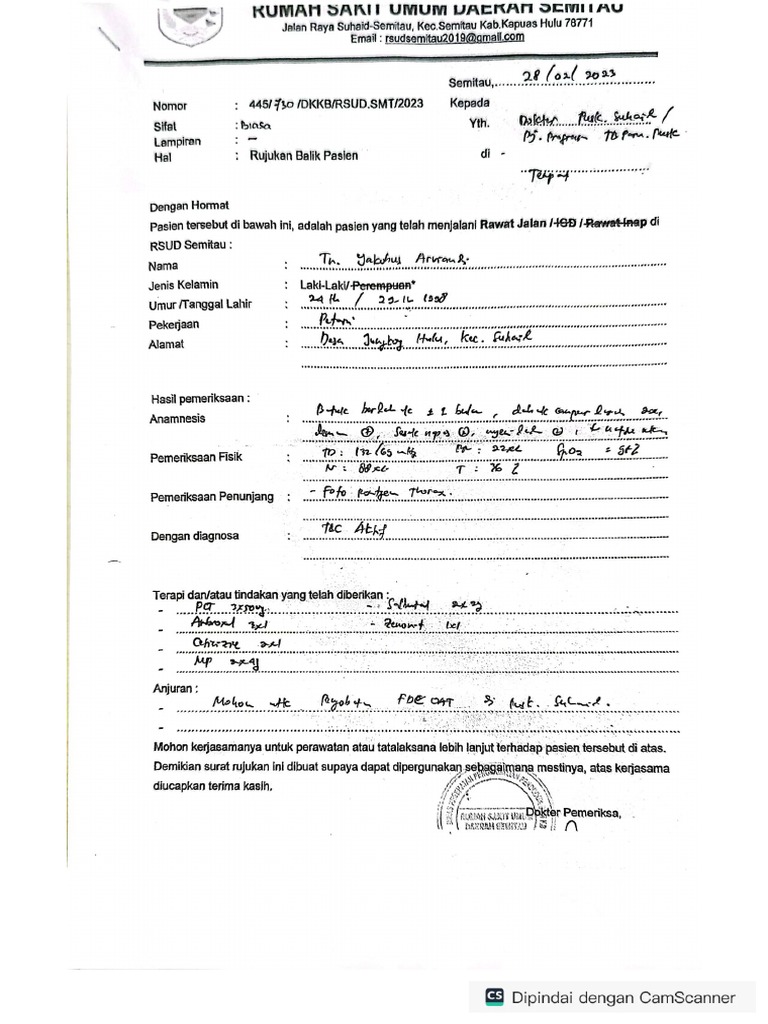 RUMAH SAKIT UMUM DAERAH SEMITAU
Jalan Raya Suhaid-Semitau, Kec.Semitau Kab.Kapuas Hulu 78771
Email : rsudsemitau2019@gmail.com
Semitau, 28/02/2023
Nomor : 445/730/DKKB/RSUD.SMT/2023 Kepada
Sifat : Biasa Yth. Dokter Pusk. Suhaid /
Lampiran : - Pj. Program TB Paru Pusk
Hal : Rujukan Balik Pasien di -
Tempat
Dengan Hormat
Pasien tersebut di bawah ini, adalah pasien yang telah menjalani Rawat Jalan / IGD / Rawat Inap di
RSUD Semitau :
Nama : Tn. Yakobus
Jenis Kelamin : Laki-Laki/Perempuan*
Umur /Tanggal Lahir : 24 th / 22-12 1998
Pekerjaan : Petani
Alamat : Desa Hulu, Kec. Suhaid
Hasil pemeriksaan :
Anamnesis : Batuk ± 1 bulan, dahak campur darah
demam (+), sesak napas
Pemeriksaan Fisik : TD : 132/69 RR : 22x SpO2 =
N : 88x T : 36
Pemeriksaan Penunjang : - Foto Rontgen Thorax.
Dengan diagnosa : TBC Aktif
Terapi dan/atau tindakan yang telah diberikan :
- PCT - Salbutamol
- Ambroxol 3x1 - 1x1
- Cetirizine 2x1
- MP
Anjuran :
- Mohon utk FDC OAT di Pusk. Suhaid.
-
Mohon kerjasamanya untuk perawatan atau tatalaksana lebih lanjut terhadap pasien tersebut di atas.
Demikian surat rujukan ini dibuat supaya dapat dipergunakan sebagaimana mestinya, atas kerjasama
diucapkan terima kasih.
Dokter Pemeriksa,
RUMAH SAKIT UMUM
DAERAH SEMITAU
CS Dipindai dengan CamScanner